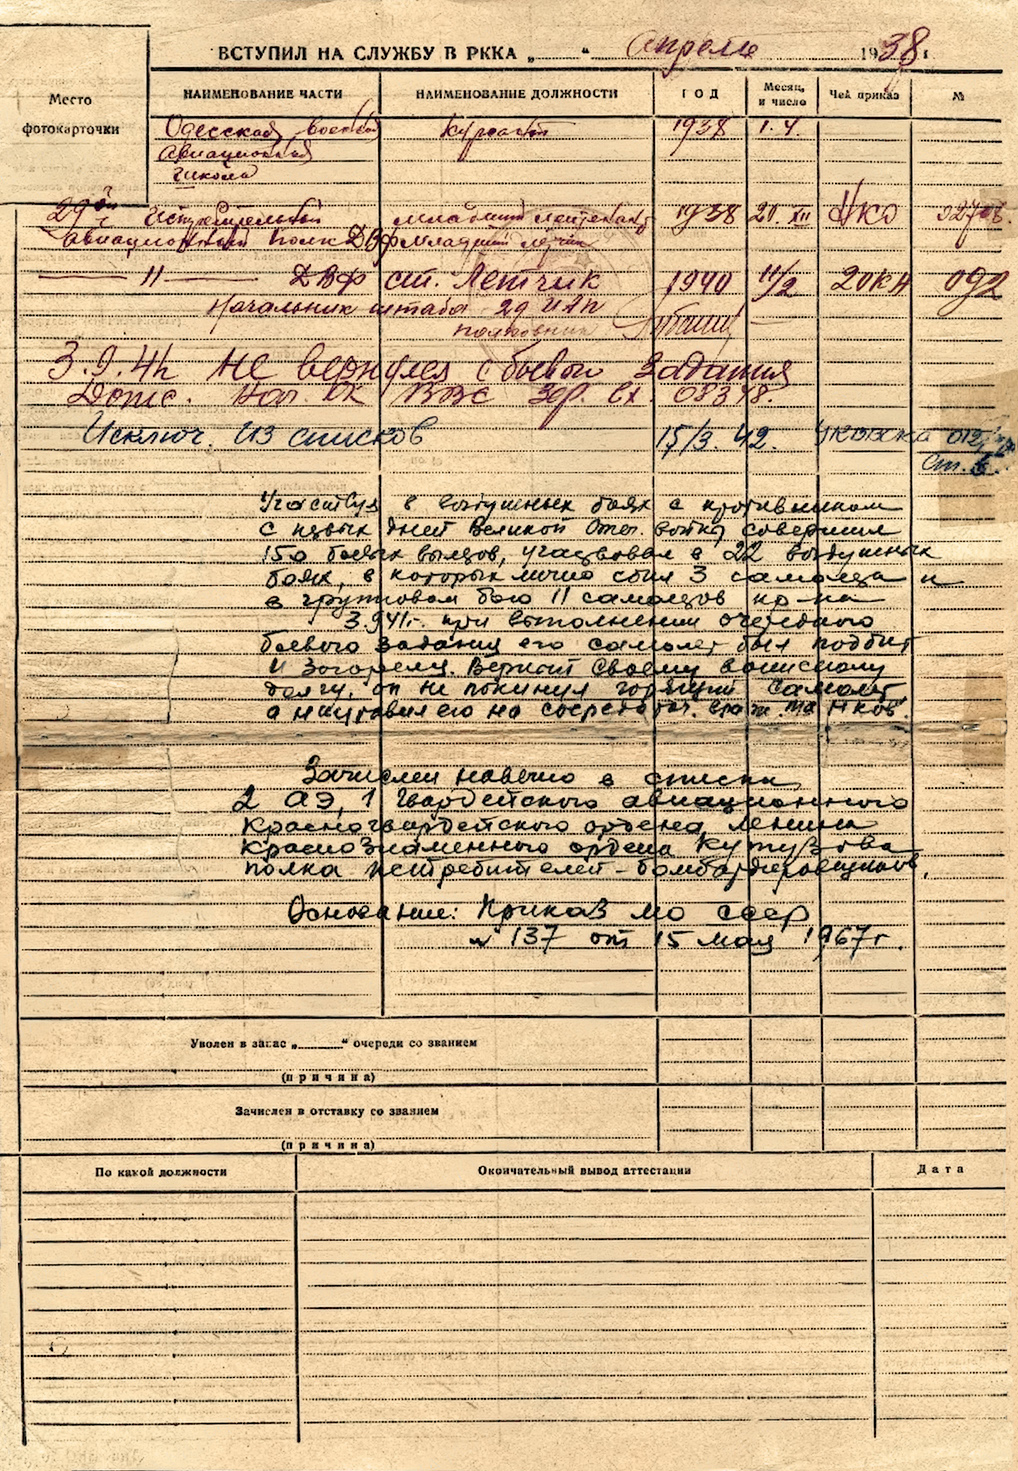 ВСТУПИЛ НА СЛУЖБУ В РККА „ “ апреле 1938 г.
Место
фотокарточки
НАИМЕНОВАНИЕ ЧАСТИ НАИМЕНОВАНИЕ ДОЛЖНОСТИ ГОД Месяц и число Чей приказ №
Одесская военная курсант 1938 1.4.
авиационная
школа
29ый Истребительный младший лейтенант 1938 20.XII НКО
авиационный полк ДВФ младший летчик
— 11 — ДВФ ст. Летчик 1940 11/2 2ОКА 092
Начальник штаба 29 ИАП
полковник
3.9.41г не вернулся с боевого задания
Донес. ВВС вх. 08348.
Исключ. из списков 15/3. 42.
ст. 6.
Участвуя в воздушных боях с противником
с первых дней Великой Отеч. войны, совершил
150 боевых вылетов, участвовал в 22 воздушных
боях, в которых лично сбил 3 самолета и
в групповом бою 11 самолетов пр-ка
3.9.41г. при выполнении очередного
боевого задания его самолет был подбит
и загорелся. Верный своему воинскому
долгу, он не покинул горящий самолет,
а направил его на сосредоточ. враж. танков.
Зачислен навечно в списки
2 АЭ, 1 Гвардейского авиационного
Красногвардейского ордена Ленина
Краснознаменного ордена Кутузова
полка истребителей-бомбардировщиков.
Основание: Приказ МО СССР
№ 137 от 15 мая 1967г.
Уволен в запас „ “ очереди со званием
(причина)
Зачислен в отставку со званием
(причина)
По какой должности Окончательный вывод аттестации Дата